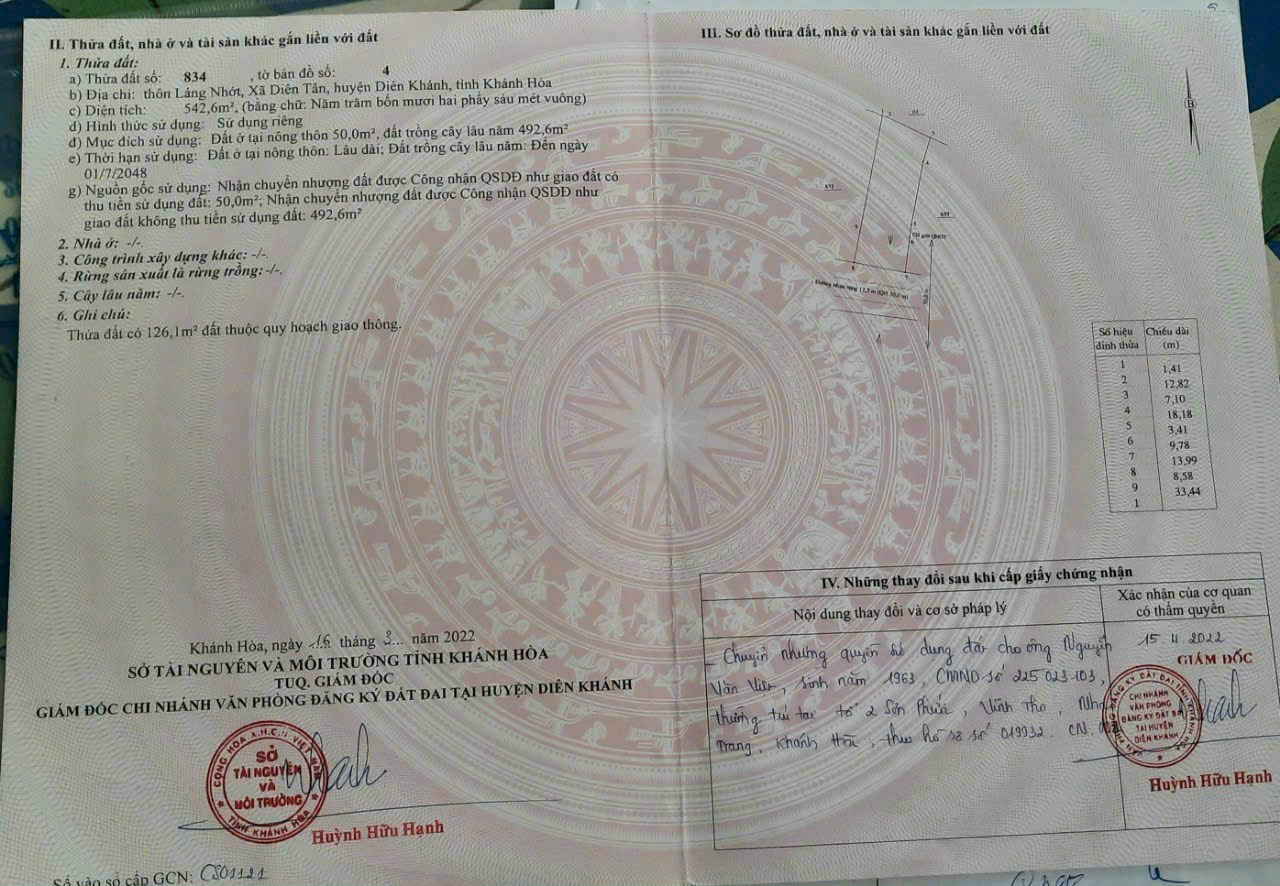 II. Thửa đất, nhà ở và tài sản khác gắn liền với đất
1. Thửa đất:
a) Thửa đất số: 834 , tờ bản đồ số: 4
b) Địa chỉ: thôn Láng Nhớt, Xã Diên Tân, huyện Diên Khánh, tỉnh Khánh Hòa
c) Diện tích: 542,6m², (bằng chữ: Năm trăm bốn mươi hai phẩy sáu mét vuông)
d) Hình thức sử dụng: Sử dụng riêng
đ) Mục đích sử dụng: Đất ở tại nông thôn 50,0m², đất trồng cây lâu năm 492,6m²
e) Thời hạn sử dụng: Đất ở tại nông thôn: Lâu dài; Đất trồng cây lâu năm: Đến ngày
01/7/2048
g) Nguồn gốc sử dụng: Nhận chuyển nhượng đất được Công nhận QSDĐ như giao đất có
thu tiền sử dụng đất: 50,0m²; Nhận chuyển nhượng đất được Công nhận QSDĐ như
giao đất không thu tiền sử dụng đất: 492,6m²
2. Nhà ở: -/-.
3. Công trình xây dựng khác: -/-.
4. Rừng sản xuất là rừng trồng: -/-.
5. Cây lâu năm: -/-.
6. Ghi chú:
Thửa đất có 126,1m² đất thuộc quy hoạch giao thông.
Khánh Hòa, ngày 16 tháng 3 năm 2022
SỞ TÀI NGUYÊN VÀ MÔI TRƯỜNG TỈNH KHÁNH HÒA
TUQ. GIÁM ĐỐC
GIÁM ĐỐC CHI NHÁNH VĂN PHÒNG ĐĂNG KÝ ĐẤT ĐAI TẠI HUYỆN DIÊN KHÁNH
CỘNG HÒA X.H.C.N VIỆT NAM
SỞ
TÀI NGUYÊN
VÀ
MÔI TRƯỜNG
TỈNH KHÁNH HÒA
Huỳnh Hữu Hạnh
Số vào sổ cấp GCN: CS01121
III. Sơ đồ thửa đất, nhà ở và tài sản khác gắn liền với đất
B
1
2
3
4
5
6
7
8
9
Chỉ giới QHGT
Đường nhựa rộng 12,5 m (QH 30,0 m)
Số hiệu đỉnh thửa Chiều dài (m)
1
1,41
2
12,82
3
7,10
4
18,18
5
3,41
6
9,78
7
13,99
8
8,58
9
33,44
1
IV. Những thay đổi sau khi cấp giấy chứng nhận
Nội dung thay đổi và cơ sở pháp lý
Xác nhận của cơ quan
có thẩm quyền
- Chuyển nhượng quyền sử dụng đất cho ông Nguyễn
Văn , sinh năm 1963, CMND số 225 023 103,
thường trú tại tổ 2 Sơn Phước, Vĩnh Thọ, Nha
Trang, Khánh Hòa, theo hồ sơ số 019932. CN.
15. 4. 2022
GIÁM ĐỐC
CHI NHÁNH
VĂN PHÒNG
ĐĂNG KÝ ĐẤT ĐAI
TẠI HUYỆN
DIÊN KHÁNH
Huỳnh Hữu Hạnh